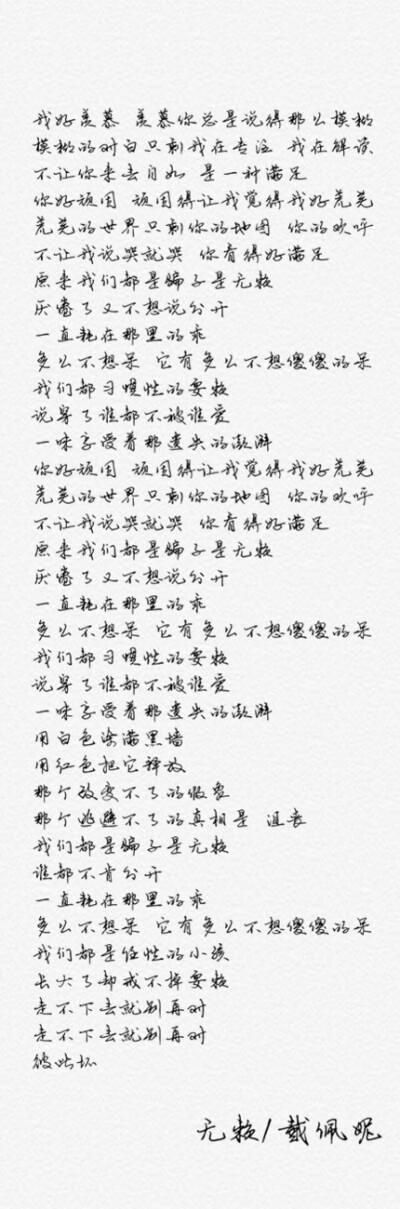 我好羡慕 羡慕你总是说得那么模糊
模糊的对白只剩我在专注 我在解读
不让你来去自如 是一种满足
你好顽固 顽固得让我觉得我好荒芜
荒芜的世界只剩你的地图 你的欢呼
不让我说哭就哭 你看得好满足
原来我们都是骗子是无赖
厌倦了又不想说公开
一直耗在那里的乖
多么不想呆 它有多么不想傻傻的呆
我们都习惯性的耍赖
说穿了谁都不被谁爱
一味享受着那遗失的澎湃
你好顽固 顽固得让我觉得我好荒芜
荒芜的世界只剩你的地图 你的欢呼
不让我说哭就哭 你看得好满足
原来我们都是骗子是无赖
厌倦了又不想说公开
一直耗在那里的乖
多么不想呆 它有多么不想傻傻的呆
我们都习惯性的耍赖
说穿了谁都不被谁爱
一味享受着那遗失的澎湃
用白色涂满黑墙
用红色把它释放
那个改变不了的假象
那个逃避不了的真相是 沮丧
我们都是骗子是无赖
谁都不肯公开
一直耗在那里的乖
多么不想呆 它有多么不想傻傻的呆
我们都是任性的小孩
长大了却戒不掉耍赖
走不下去就别再对
走不下去就别再对
彼此坏
无赖/戴佩妮